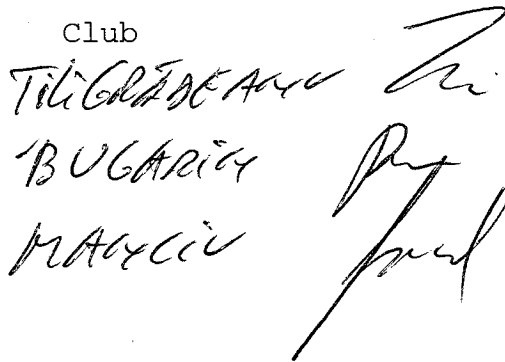 Club
TiliGRĂDEANU
BUGARIN
MANCIU